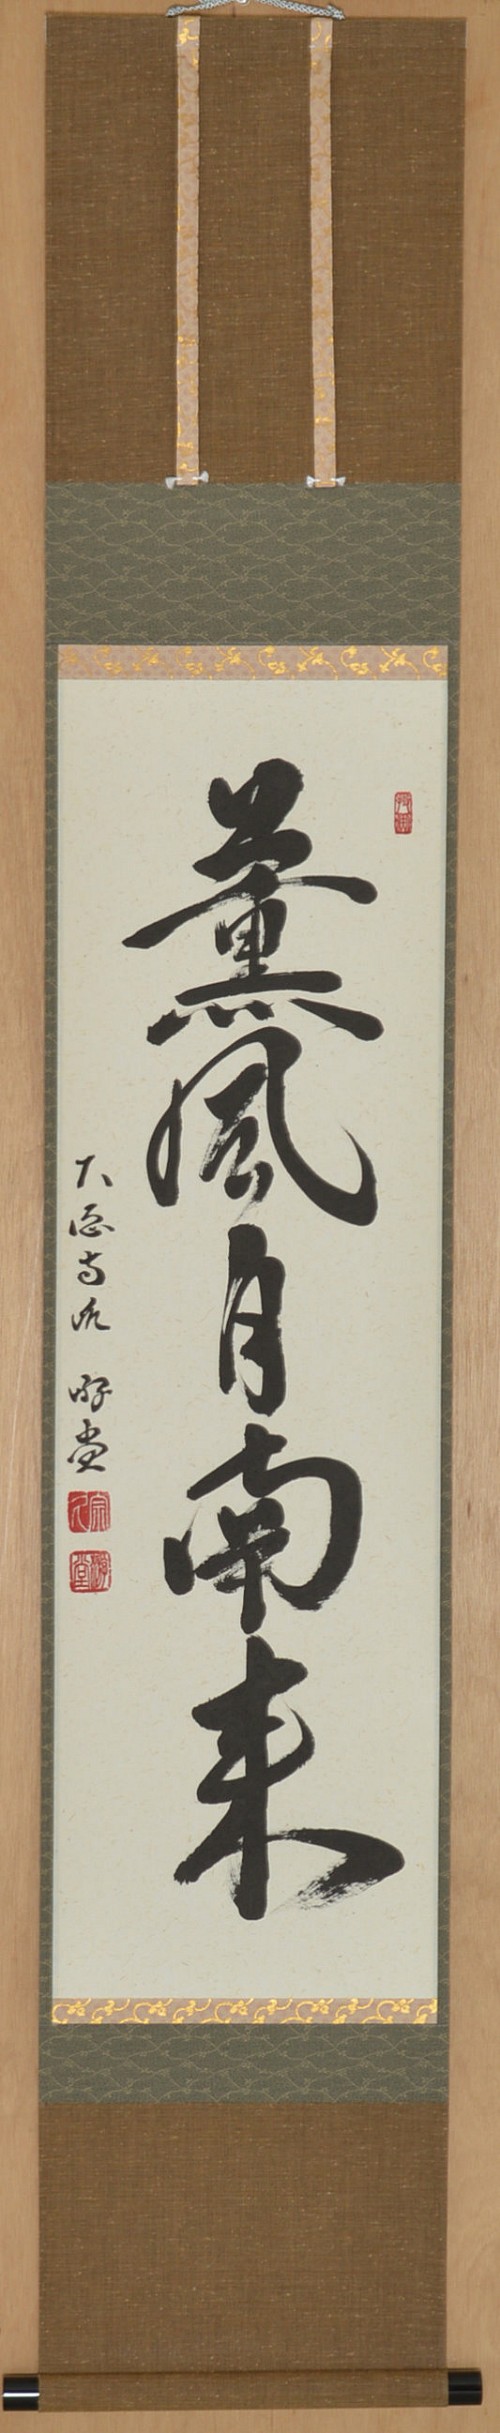 薫風自南来
大徳寺派 明堂